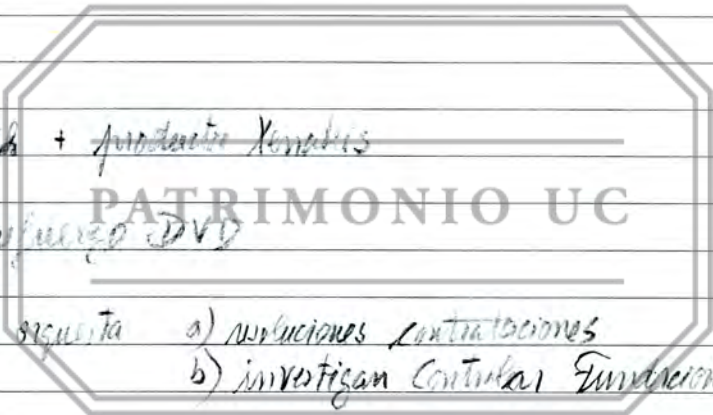 + productor Xenakis
PATRIMONIO UC
DVD
orquesta a) resoluciones contrataciones
b) investigan Contralor Fundacion